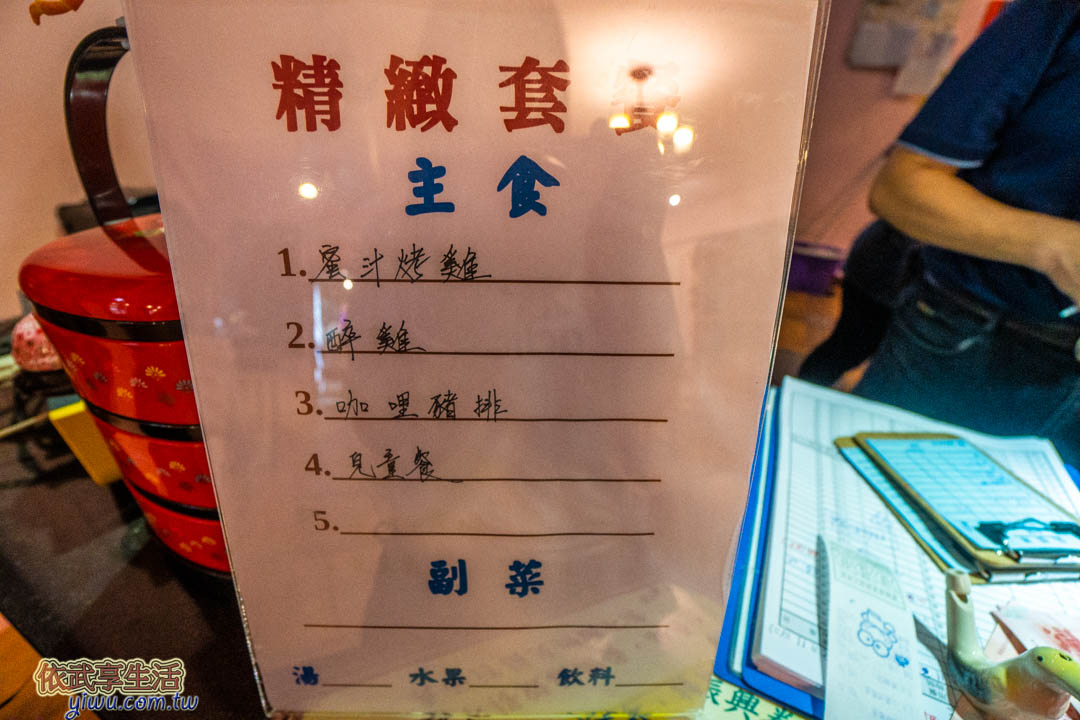 精緻套餐
主食
1. 蜜汁烤雞
2. 醉雞
3. 咖哩豬排
4. 兒童餐
5.
副菜
湯____ 水果____ 飲料____
振興
依武享生活
yiwu.com.tw